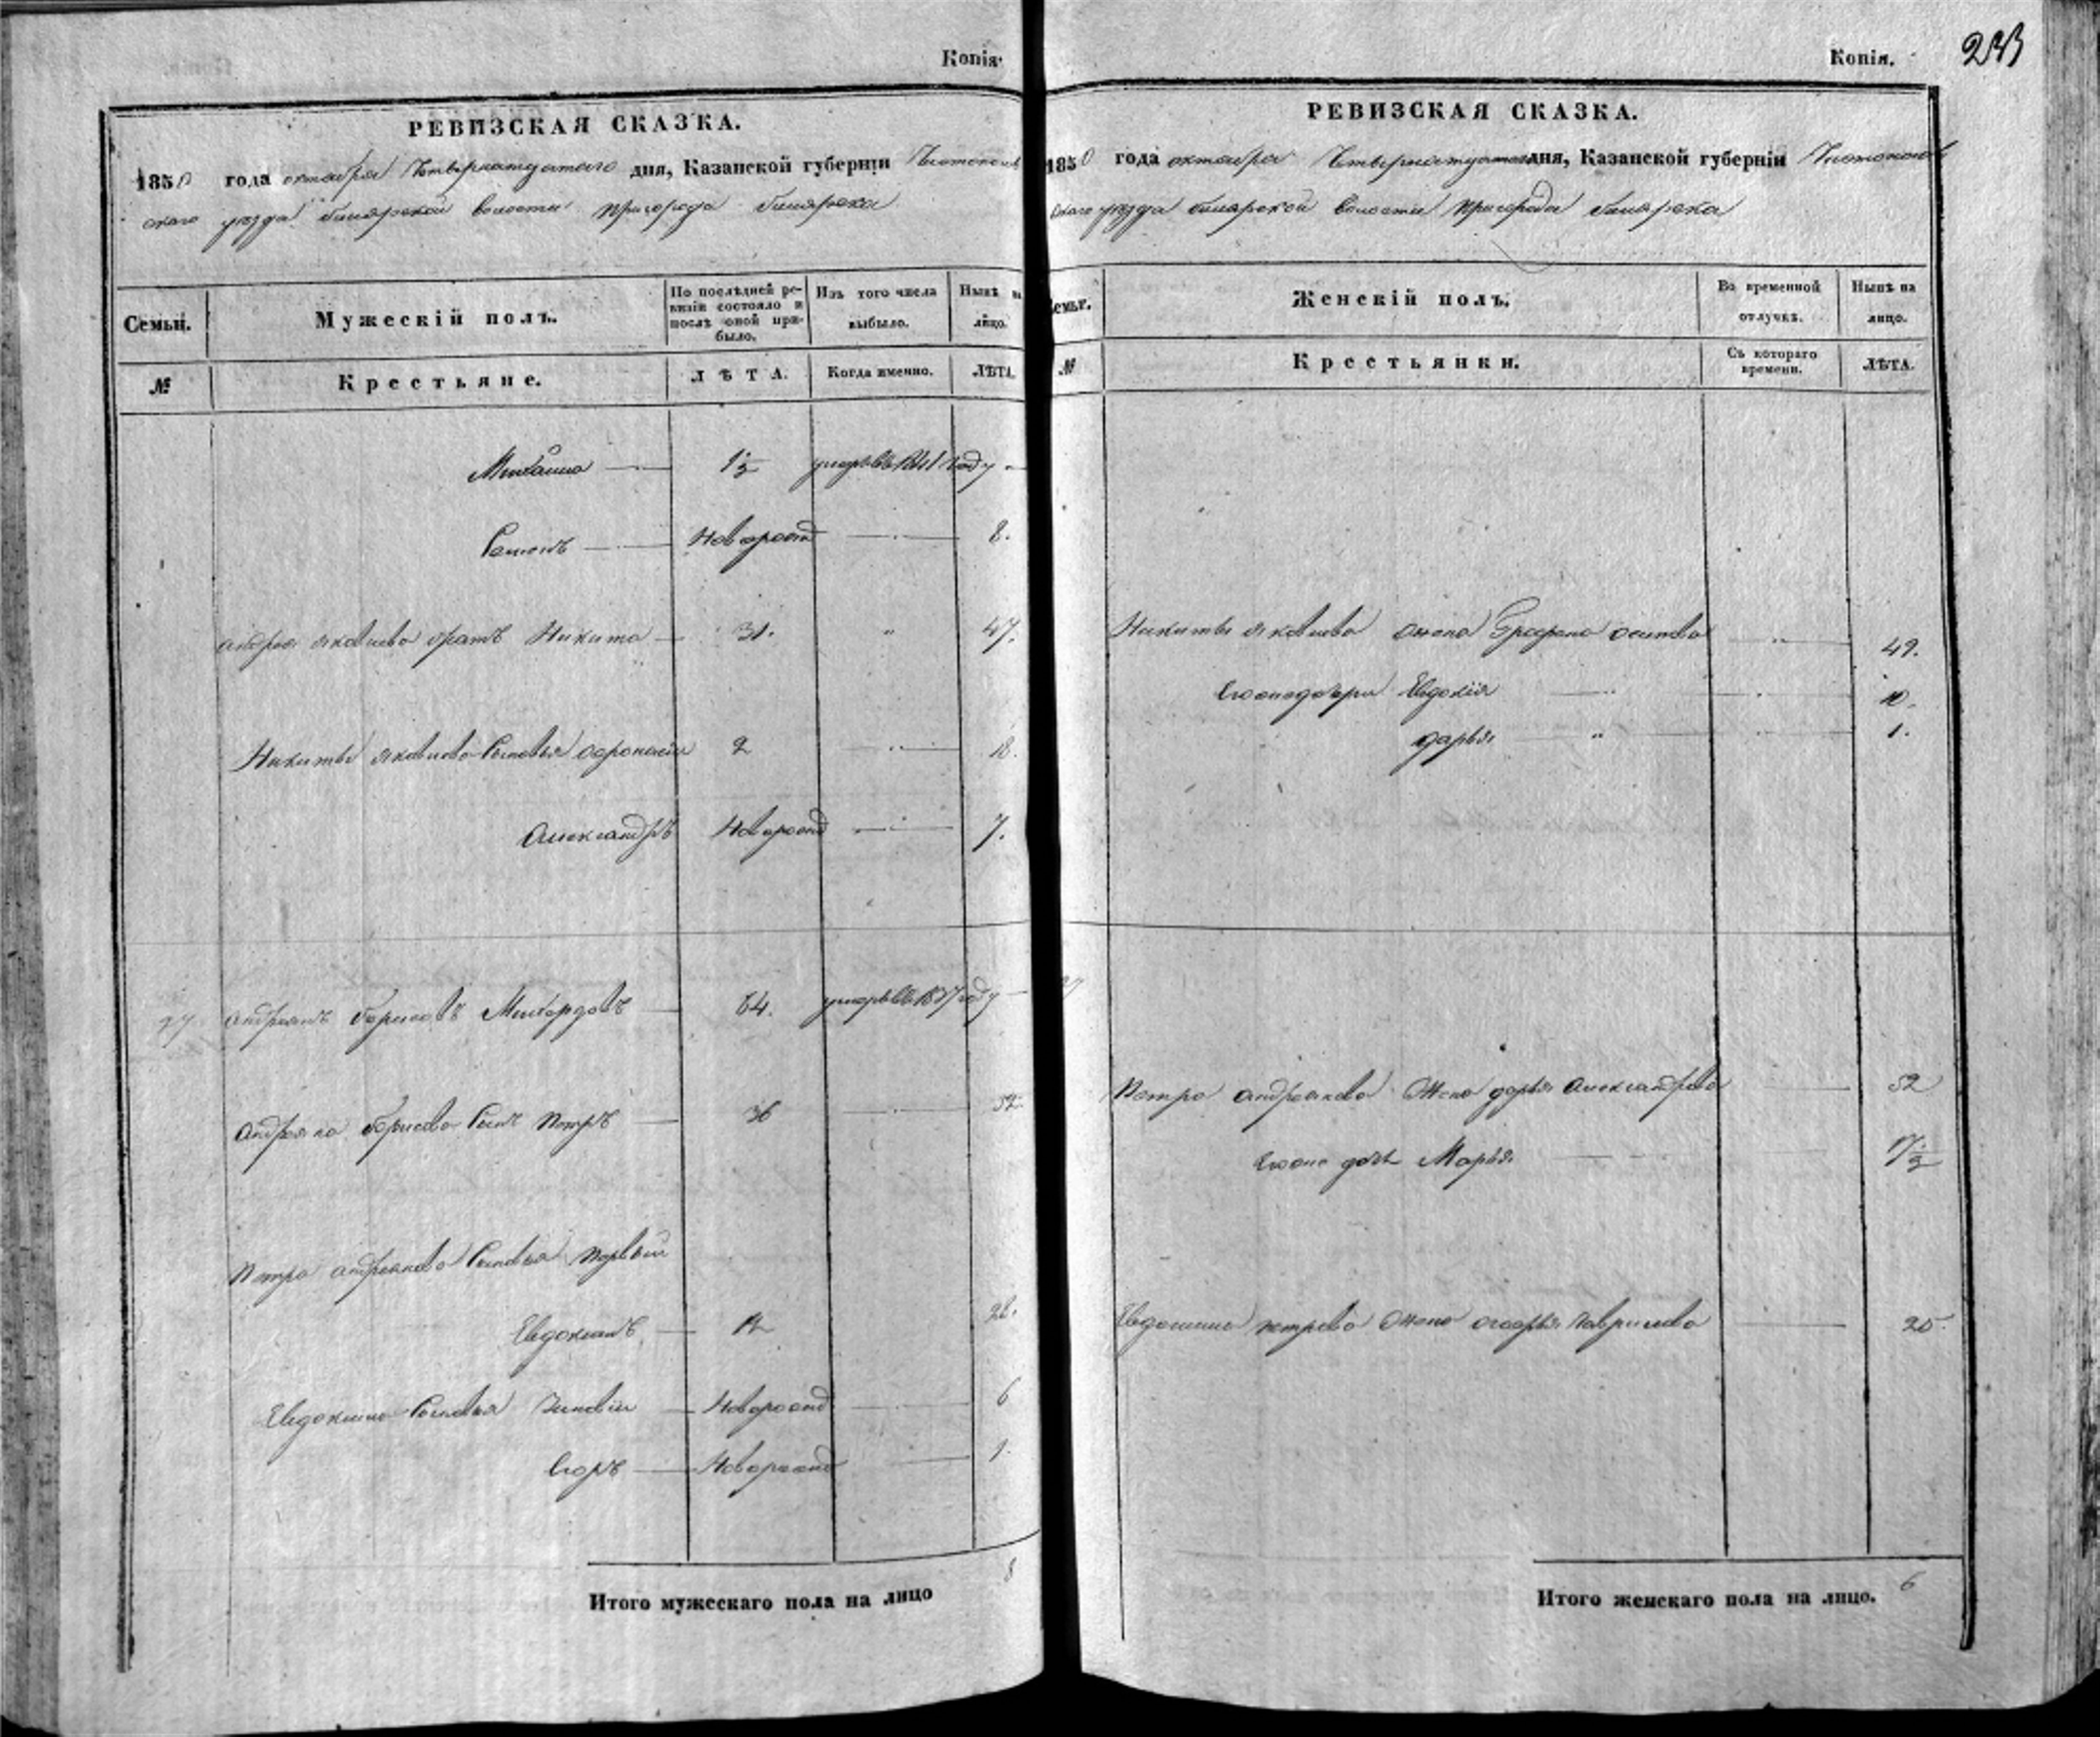 Копія.
РЕВИЗСКАЯ СКАЗКА.
1850 года октября Четвернатцатаго дня, Казанской губерніи Чистополь
скаго уезда билярской волости пригорода билярска
Семьи.
Мужескій полъ.
По послѣдней ре-
визіи состояло и
послѣ оной при-
было.
Изъ того числа
выбыло.
Нынѣ на
лицо.
№
Крестьяне.
ЛѢТА.
Когда именно.
ЛѢТА.
Михаила 1½ умеръ въ 1841 году
Новорожд 8.
андрея яковлева братъ Никита 31. " 47.
Никиты яковлева Сыновья 2 18.
Александръ Новорожд 7.
27 андреянъ борисовъ 64. умеръ въ 1837 году
Андреяна борисова Сынъ Петръ 36 52
Петра андреянова Сыновья первый
Евдокимъ 12 28.
Евдокима Сыновья Зиновіи Новорожд 6
Егоръ Новорожд 1.
Итого мужескаго пола на лицо 8
Копія.
233
РЕВИЗСКАЯ СКАЗКА.
1850 года октября Четвернатцатаго дня, Казанской губерніи Чистополь
скаго уезда билярской волости пригорода билярска
Семьи.
Женскій полъ.
Во временной
отлучкѣ.
Нынѣ на
лицо.
№
Крестьянки.
Съ котораго
времени.
ЛѢТА.
Никиты яковлева жена осипова " 49.
Евдокія 10.
дарья " 1.
27
Петра андреянова Жена дарья Александрова 52
дочь Марья 17½
Евдокима петрова Жена гаврилова 25.
Итого женскаго пола на лицо. 6